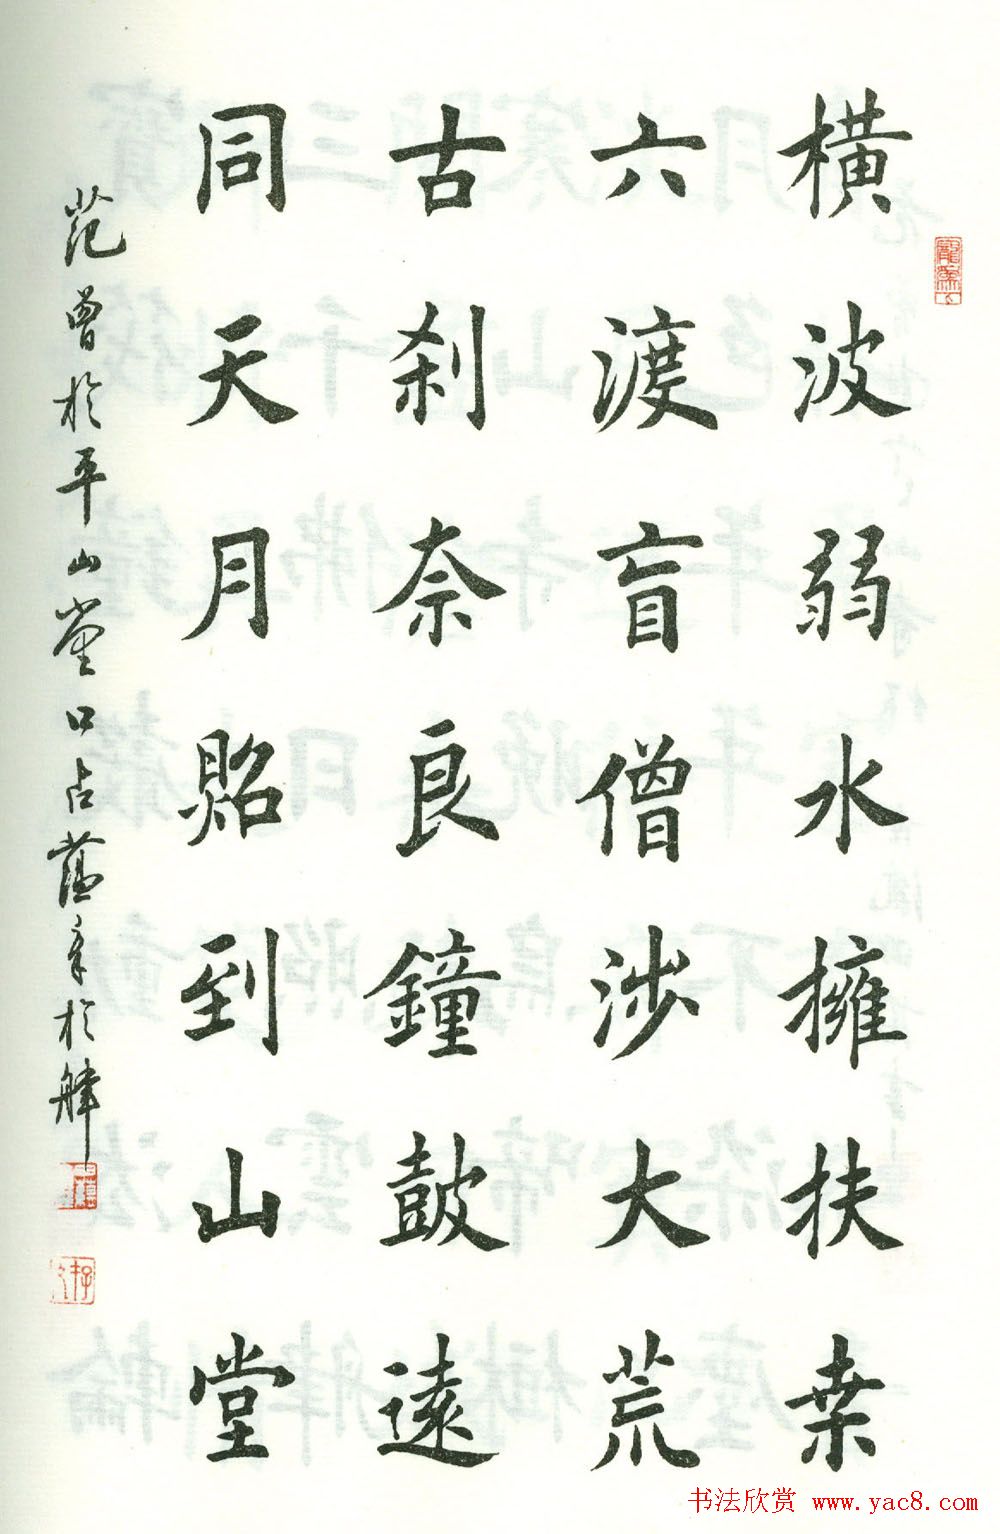 橫波弱水擁扶桑
六渡盲僧涉大荒
古刹奈良鐘鼓遠
同天月照到山堂
范曾於平山堂口占蕴章於蜂
书法欣赏 www.yac8.com